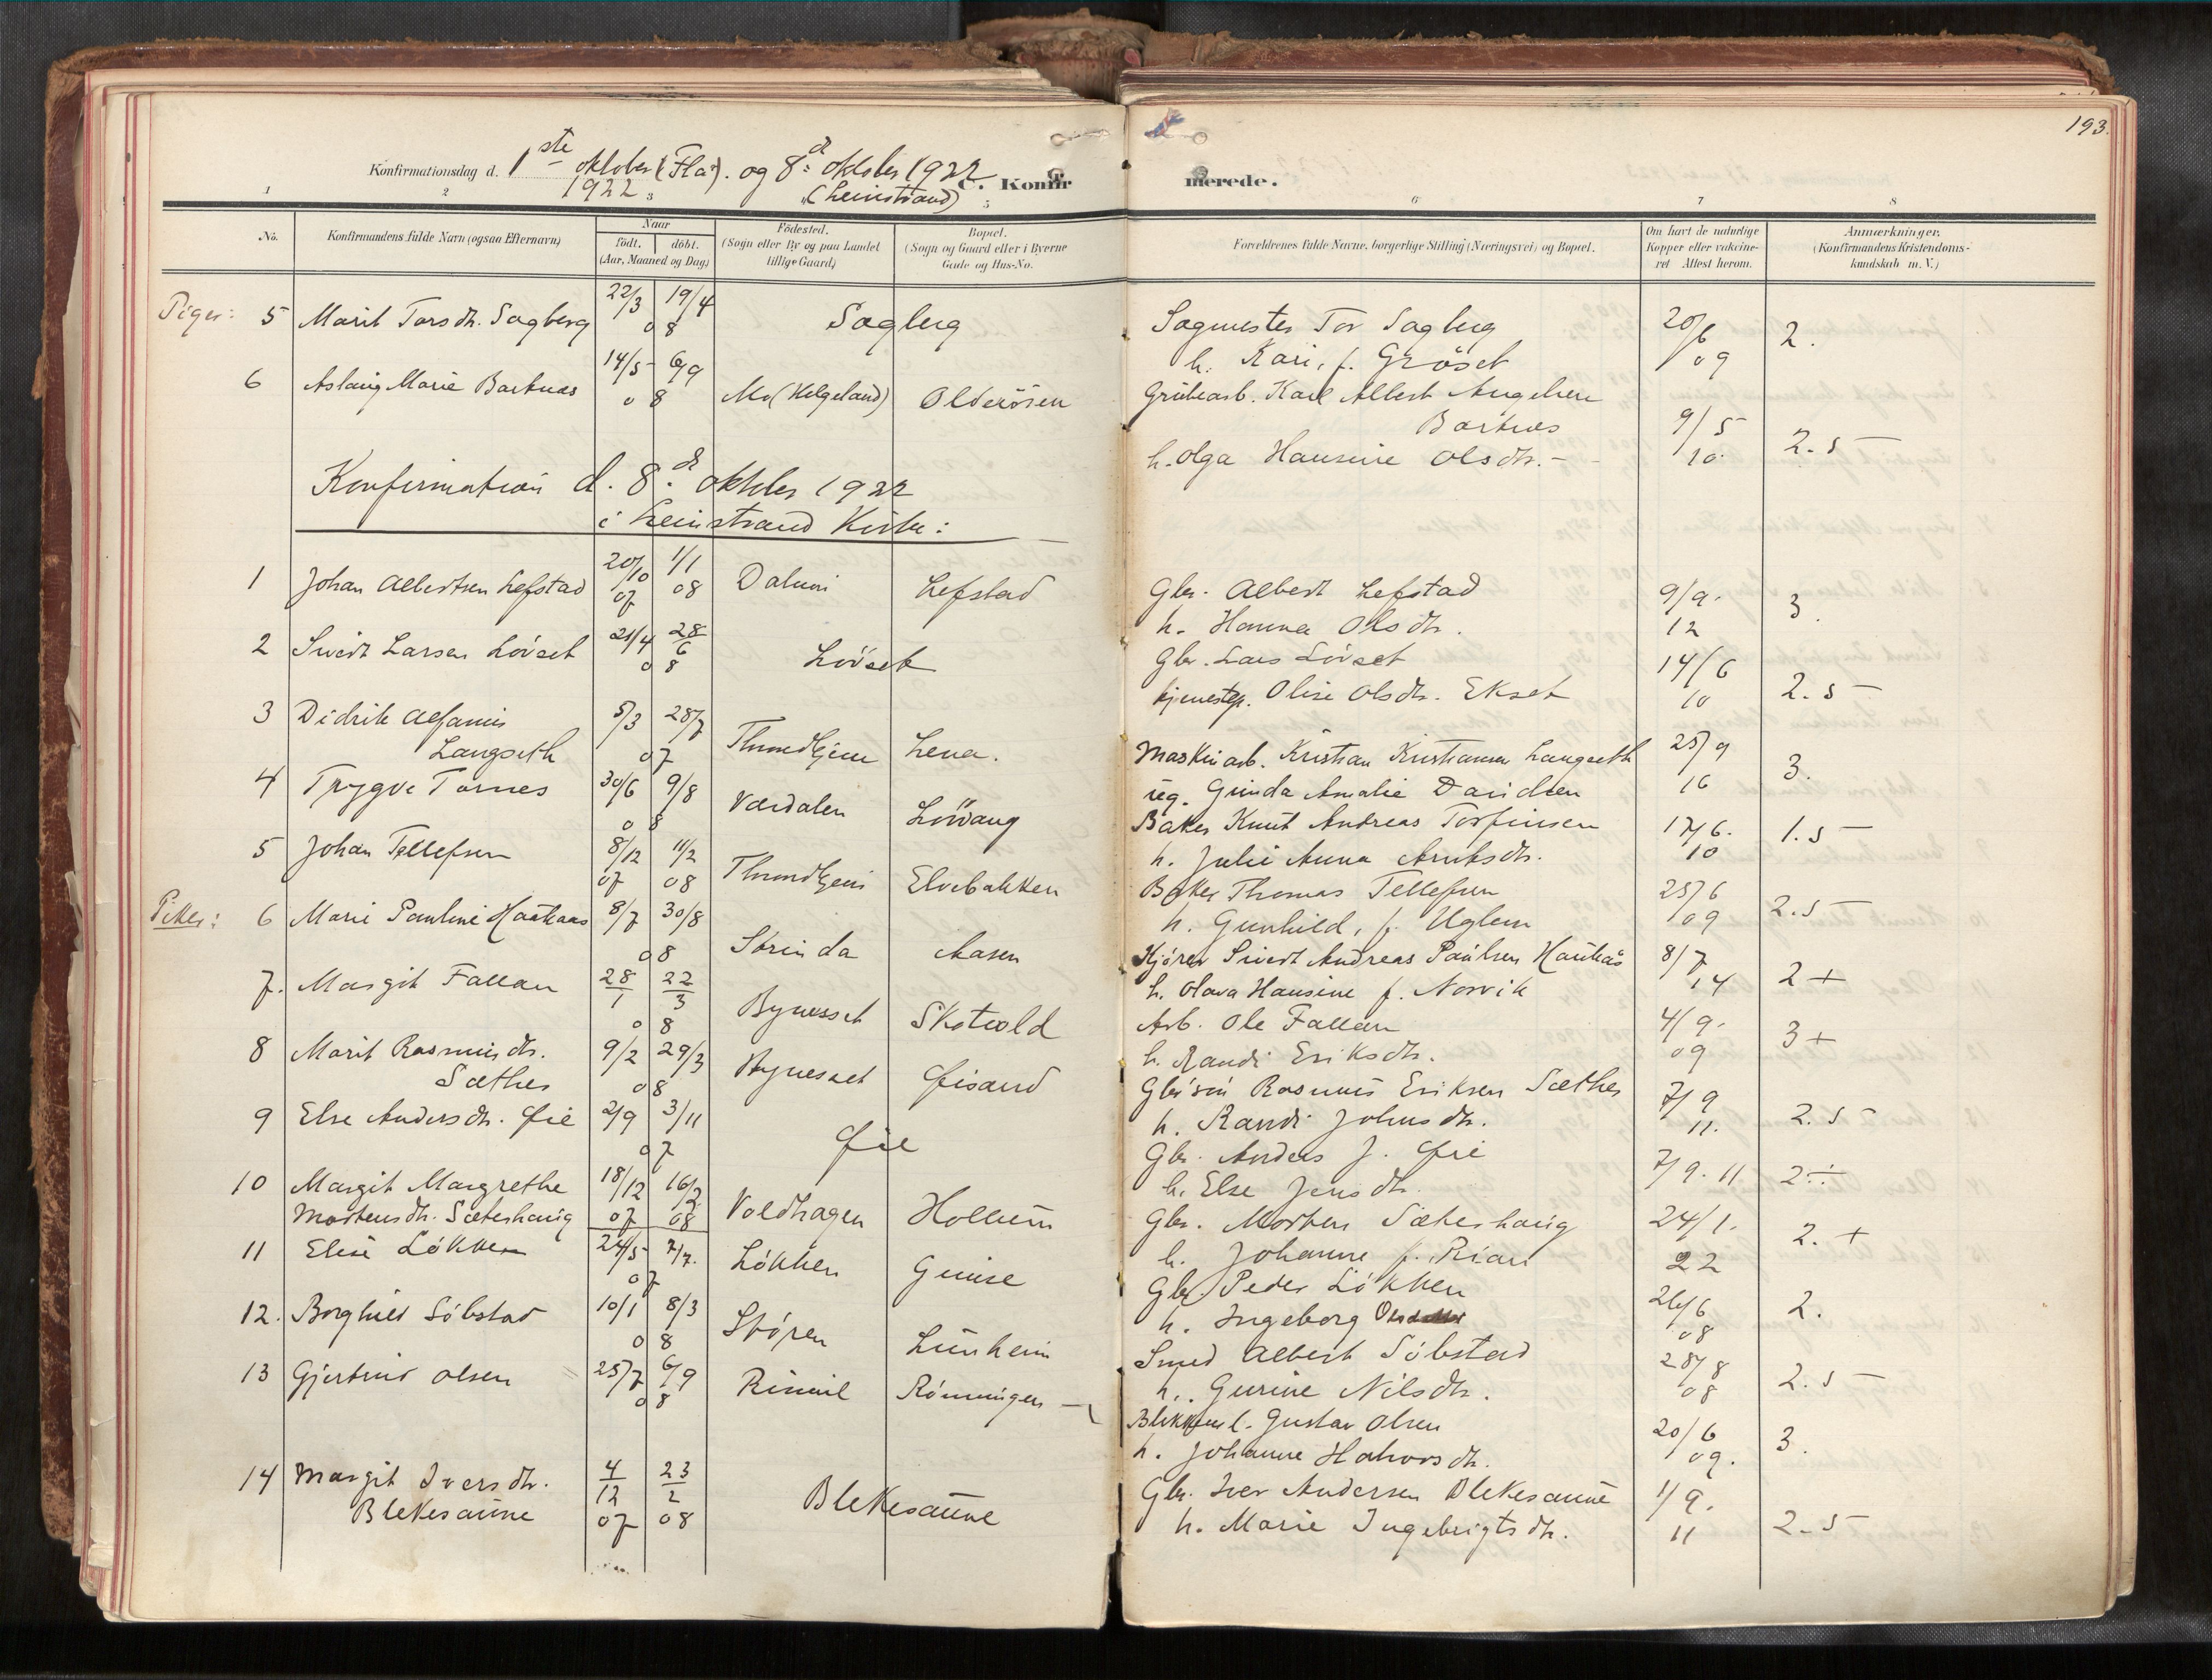 193.
Konfirmationsdag d. 1ste oktober (Flå). og 8de oktober 1922
1922
(Leinstrand)
C. Konfirmerede.
1 2 3 5 6 7 8
No.
Konfirmandens fulde Navn (ogsaa Efternavn)
Naar
födt. döbt.
(Aar, Maaned og Dag)
Födested.
(Sogn eller By og paa Landet
tillige Gaard)
Bopæl.
(Sogn og Gaard eller i Byerne
Gade og Hus-No.
Forældrenes fulde Navne, borgerlige Stilling (Næringsvei) og Bopæl.
Om havt de naturlige
Kopper eller vaccine-
ret Attest herom.
Anmærkninger.
(Konfirmandens Kristendoms-
kundskab m. V.)
Piger: 5 Marit Torsdtr. Sagberg 22/3 19/4 08 Sagberg Sagmester Tor Sagberg 20/6 09 2.
h. Kari, f. Gröset
6 Aslaug Marie Barknæs 14/5 6/9 08 Mo (Helgeland) Olderösen Grubearb. Karl Albert
Barknæs 9/5 10. 2.5 —
h. Olga Hansine Olsdtr. —
Konfirmation d. 8de oktober 1922
i Leinstrand Kirke:
1 Johan Albertsen Lefstad 20/10 07 1/1 08 Lefstad Gbr. Albert Lefstad 9/9. 12 3.
h. Hanna Olsdtr.
2 Sivert Larsen Lövset 21/4 28/6 08 Lövset Gbr. Lars Lövset 14/6 10 2.5 —
tjenestep. Olise Olsdtr. Ekset
3 Didrik
Langseth 5/3 28/7 07 Throndhjem Lena. Maskinarb. Kristian Kristiansen Langseth 25/9 16 3.
ug. Gunda Amalie Davidsen
4 Trygve Tornes 30/6 9/8 08 Værdalen Lövvang Baker Knut Andreas Torfinsen 17/6. 10 1.5 —
h. Julie Anna
5 Johan Tellefsen 8/12 07 11/2 08 Throndhjem Elvebakken Baker Thomas Tellefsen 25/6 09 2.5 —
h. Gunhild, f. Uglem
Piker: 6 Marie Pauline Haukaas 8/7 30/8 08 Strinda Aasen Kjörer Sivert Andreas Paulsen Haukås 8/7 14 2 +
h. Olava Hansine f. Norvik
7. Margit Fallan 28/1 22/3 08 Bynesset Skotvold Arb. Ole Fallan 4/9. 09 3 +
h. Randi Eriksdtr.
8 Marit Rasmusdtr.
Sæther 9/2 29/3 08 Bynesset Öisand Rasmus Eriksen Sæther 7/9 11. 2.5 —
h. Randi Johnsdtr.
9 Else Andersdtr. Öie 2/9 3/11 07 Öie Gbr. Anders J. Öie 7/9. 11 2 ÷
h. Else Jensdtr.
10 Margit Margrethe
Mortensdtr. Sæterhaug 18/12 07 16/2 08 Voldhagen Hollum Gbr. Morten Sæterhaug 24/1. 22 2. +
h. Johanne f. Rian
11 Elise Lökken 24/5 7/7. 07 Lökken Guise Gbr. Peder Lökken 26/6 08 2.
h. Ingeborg Olsdatter
12. Borghild Söbstad 10/1 8/3 08 Stören Lunheim Smed Albert Söbstad 28/8 08 2.5 —
h. Gurine Nilsdtr.
13 Gjertrud Olsen 25/7 6/9 08 Rimul Rönningen — Blikkensl. Gustav Olsen 20/6 09. 3.
h. Johanne Halvorsdtr.
14 Margit Iversdtr.
Blekesaune 4/12 07 23/2 08 Blekesaune Gbr. Iver Andersen Blekesaune 1/9. 11 2.5 —
h. Marie Ingebrigtsdtr.